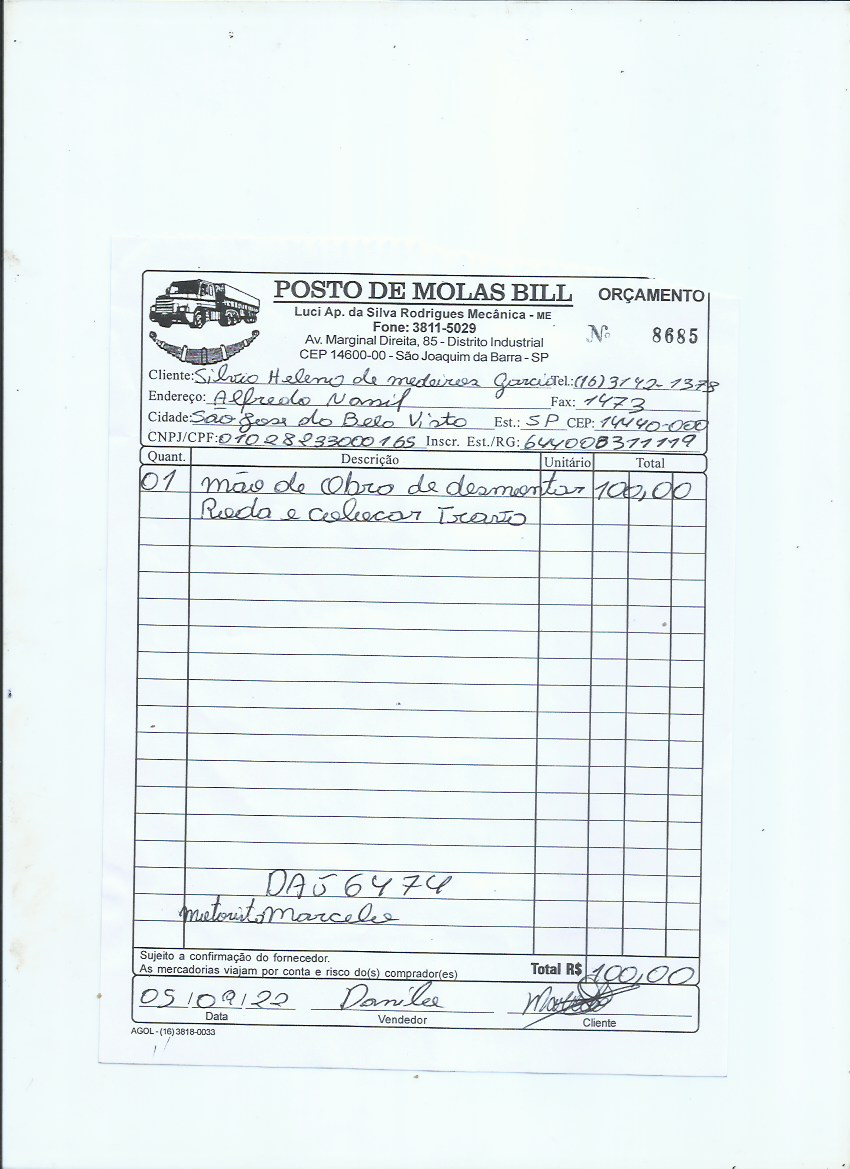 POSTO DE MOLAS BILL ORÇAMENTO
Luci Ap. da Silva Rodrigues Mecânica - ME
Fone: 3811-5029
Nº 8685
Av. Marginal Direita, 85 - Distrito Industrial
CEP 14600-00 - São Joaquim da Barra - SP
Cliente: Silvio Heleno de medeiros Garcia Tel.: (16) 3142-1378
Endereço: Alfredo Nassif Fax: 1473
Cidade: São Jose do Bela Vista Est.: SP CEP: 14440-000
CNPJ/CPF: Inscr. Est./RG:
Quant. Descrição Unitário Total
01 mão de Obra de desmontar 100,00
Roda e colocar
6474
motorista Marcelo
Sujeito a confirmação do fornecedor.
As mercadorias viajam por conta e risco do(s) comprador(es)
Total R$ 100,00
05/09/22 Danilo
Data Vendedor Cliente
AGOL - (16) 3818-0033